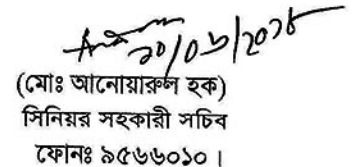 ২০/০৬/২০১৮
(মোঃ আনোয়ারুল হক)
সিনিয়র সহকারী সচিব
ফোনঃ ৯৫৬৬০১০।